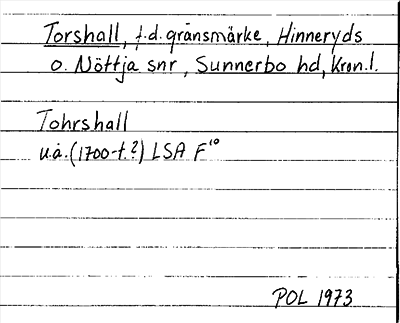 Torshall, f.d. gränsmärke, Hinneryds
o. Nöttja snr, Sunnerbo hd, Kron.l.
Tohrshall
u.å. (1700-t.?) LSA F¹⁰
POL 1973